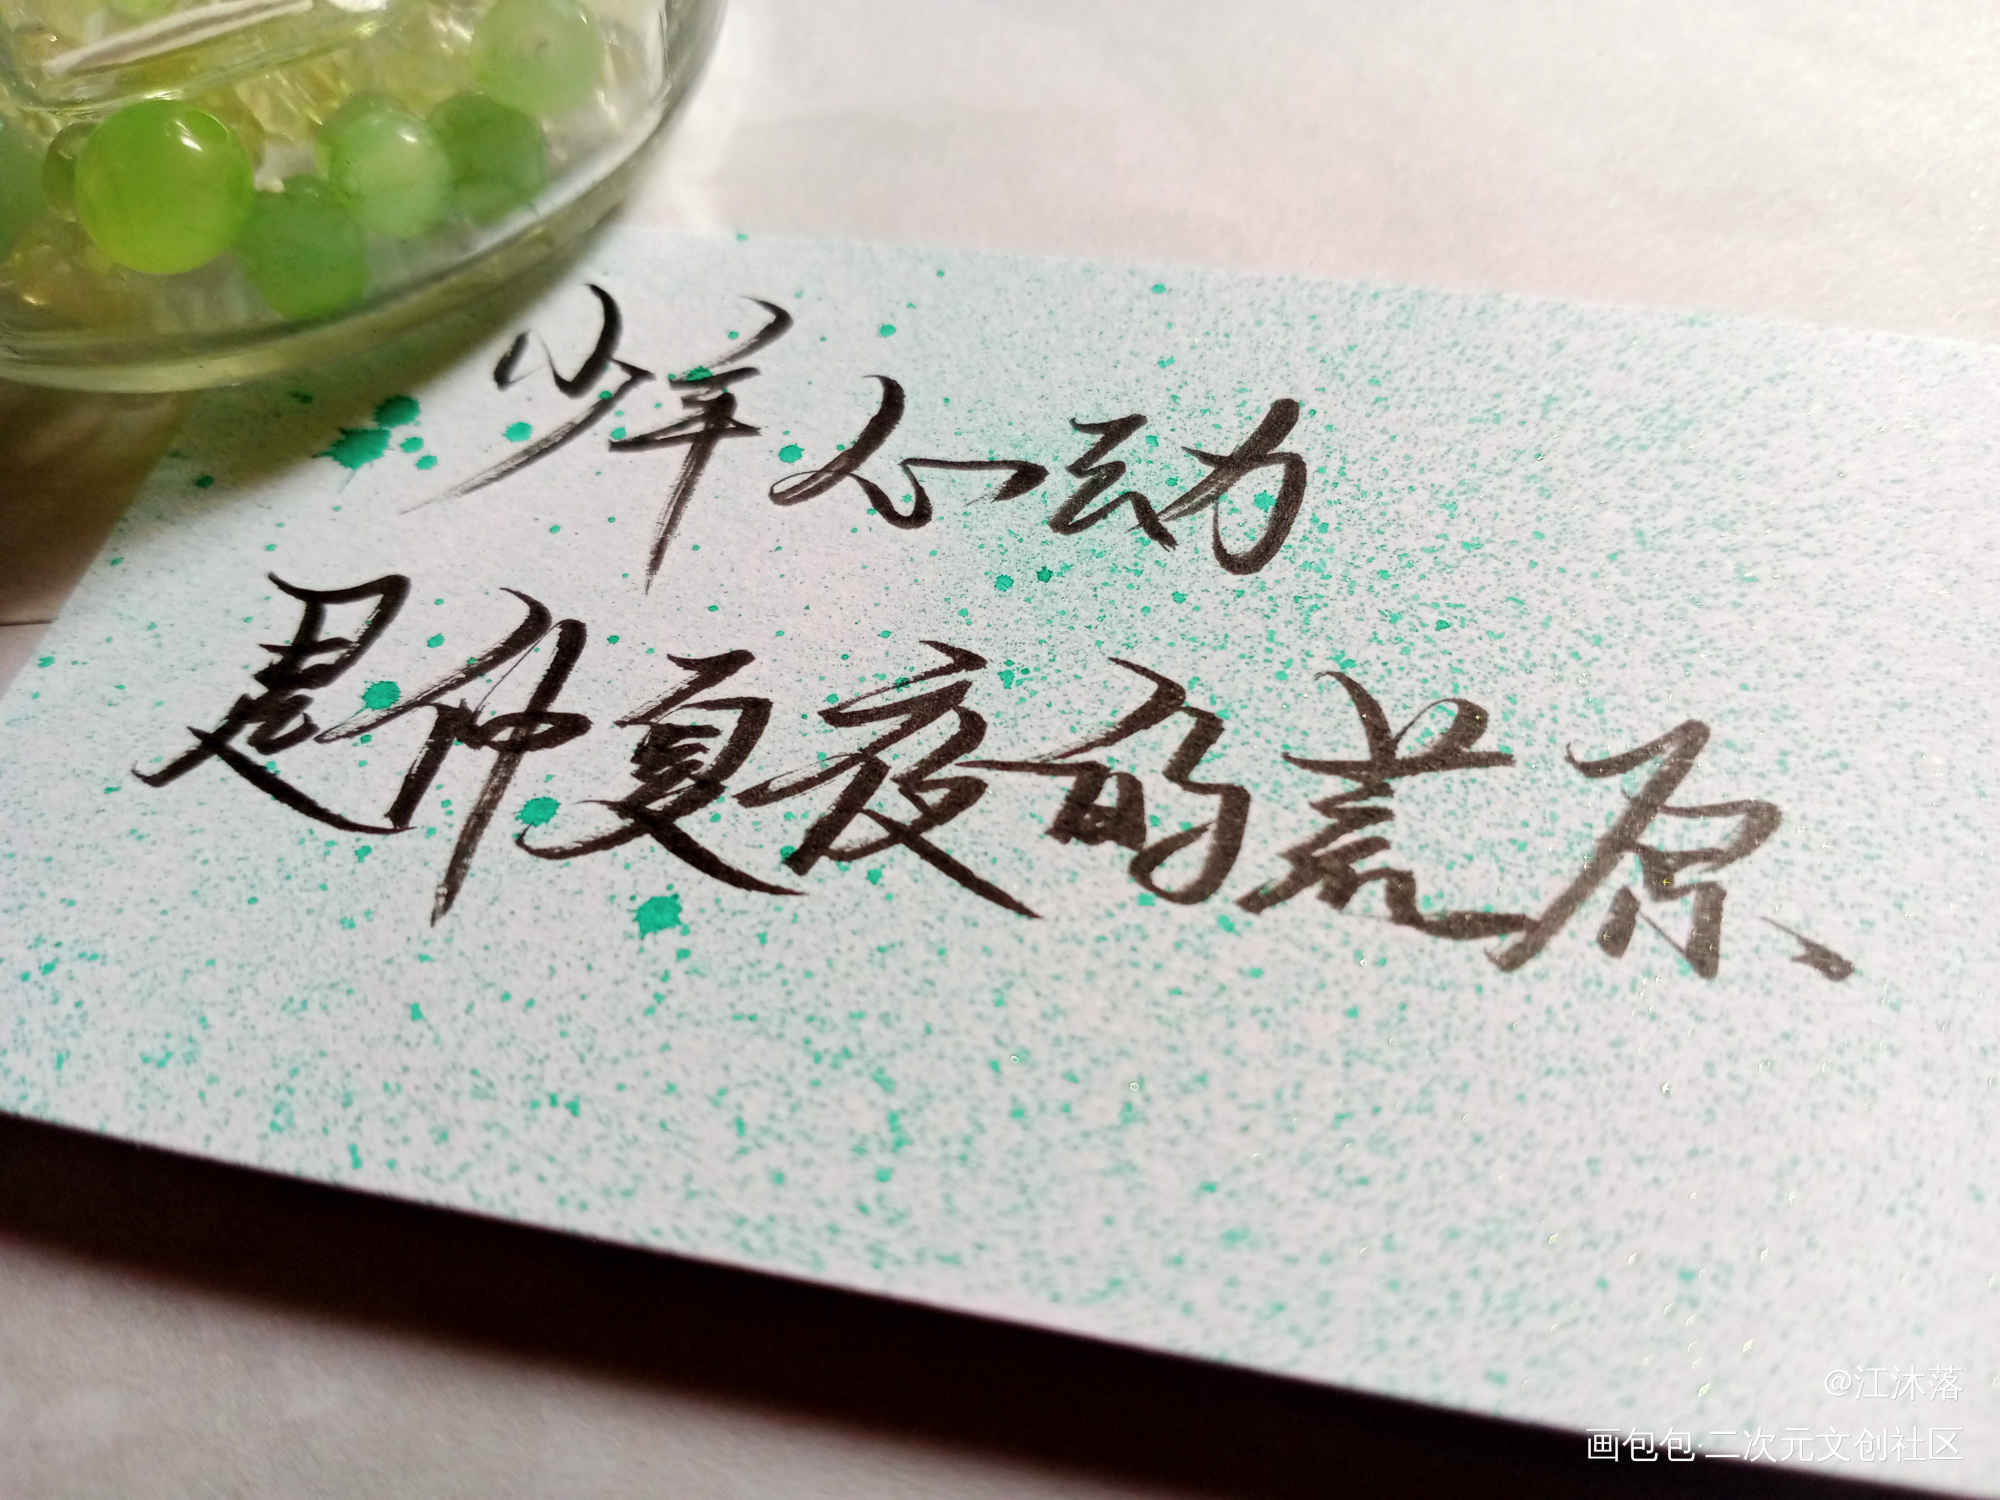 少年心动
是仲夏夜的荒原、
@江沐落
画包包·二次元文创社区